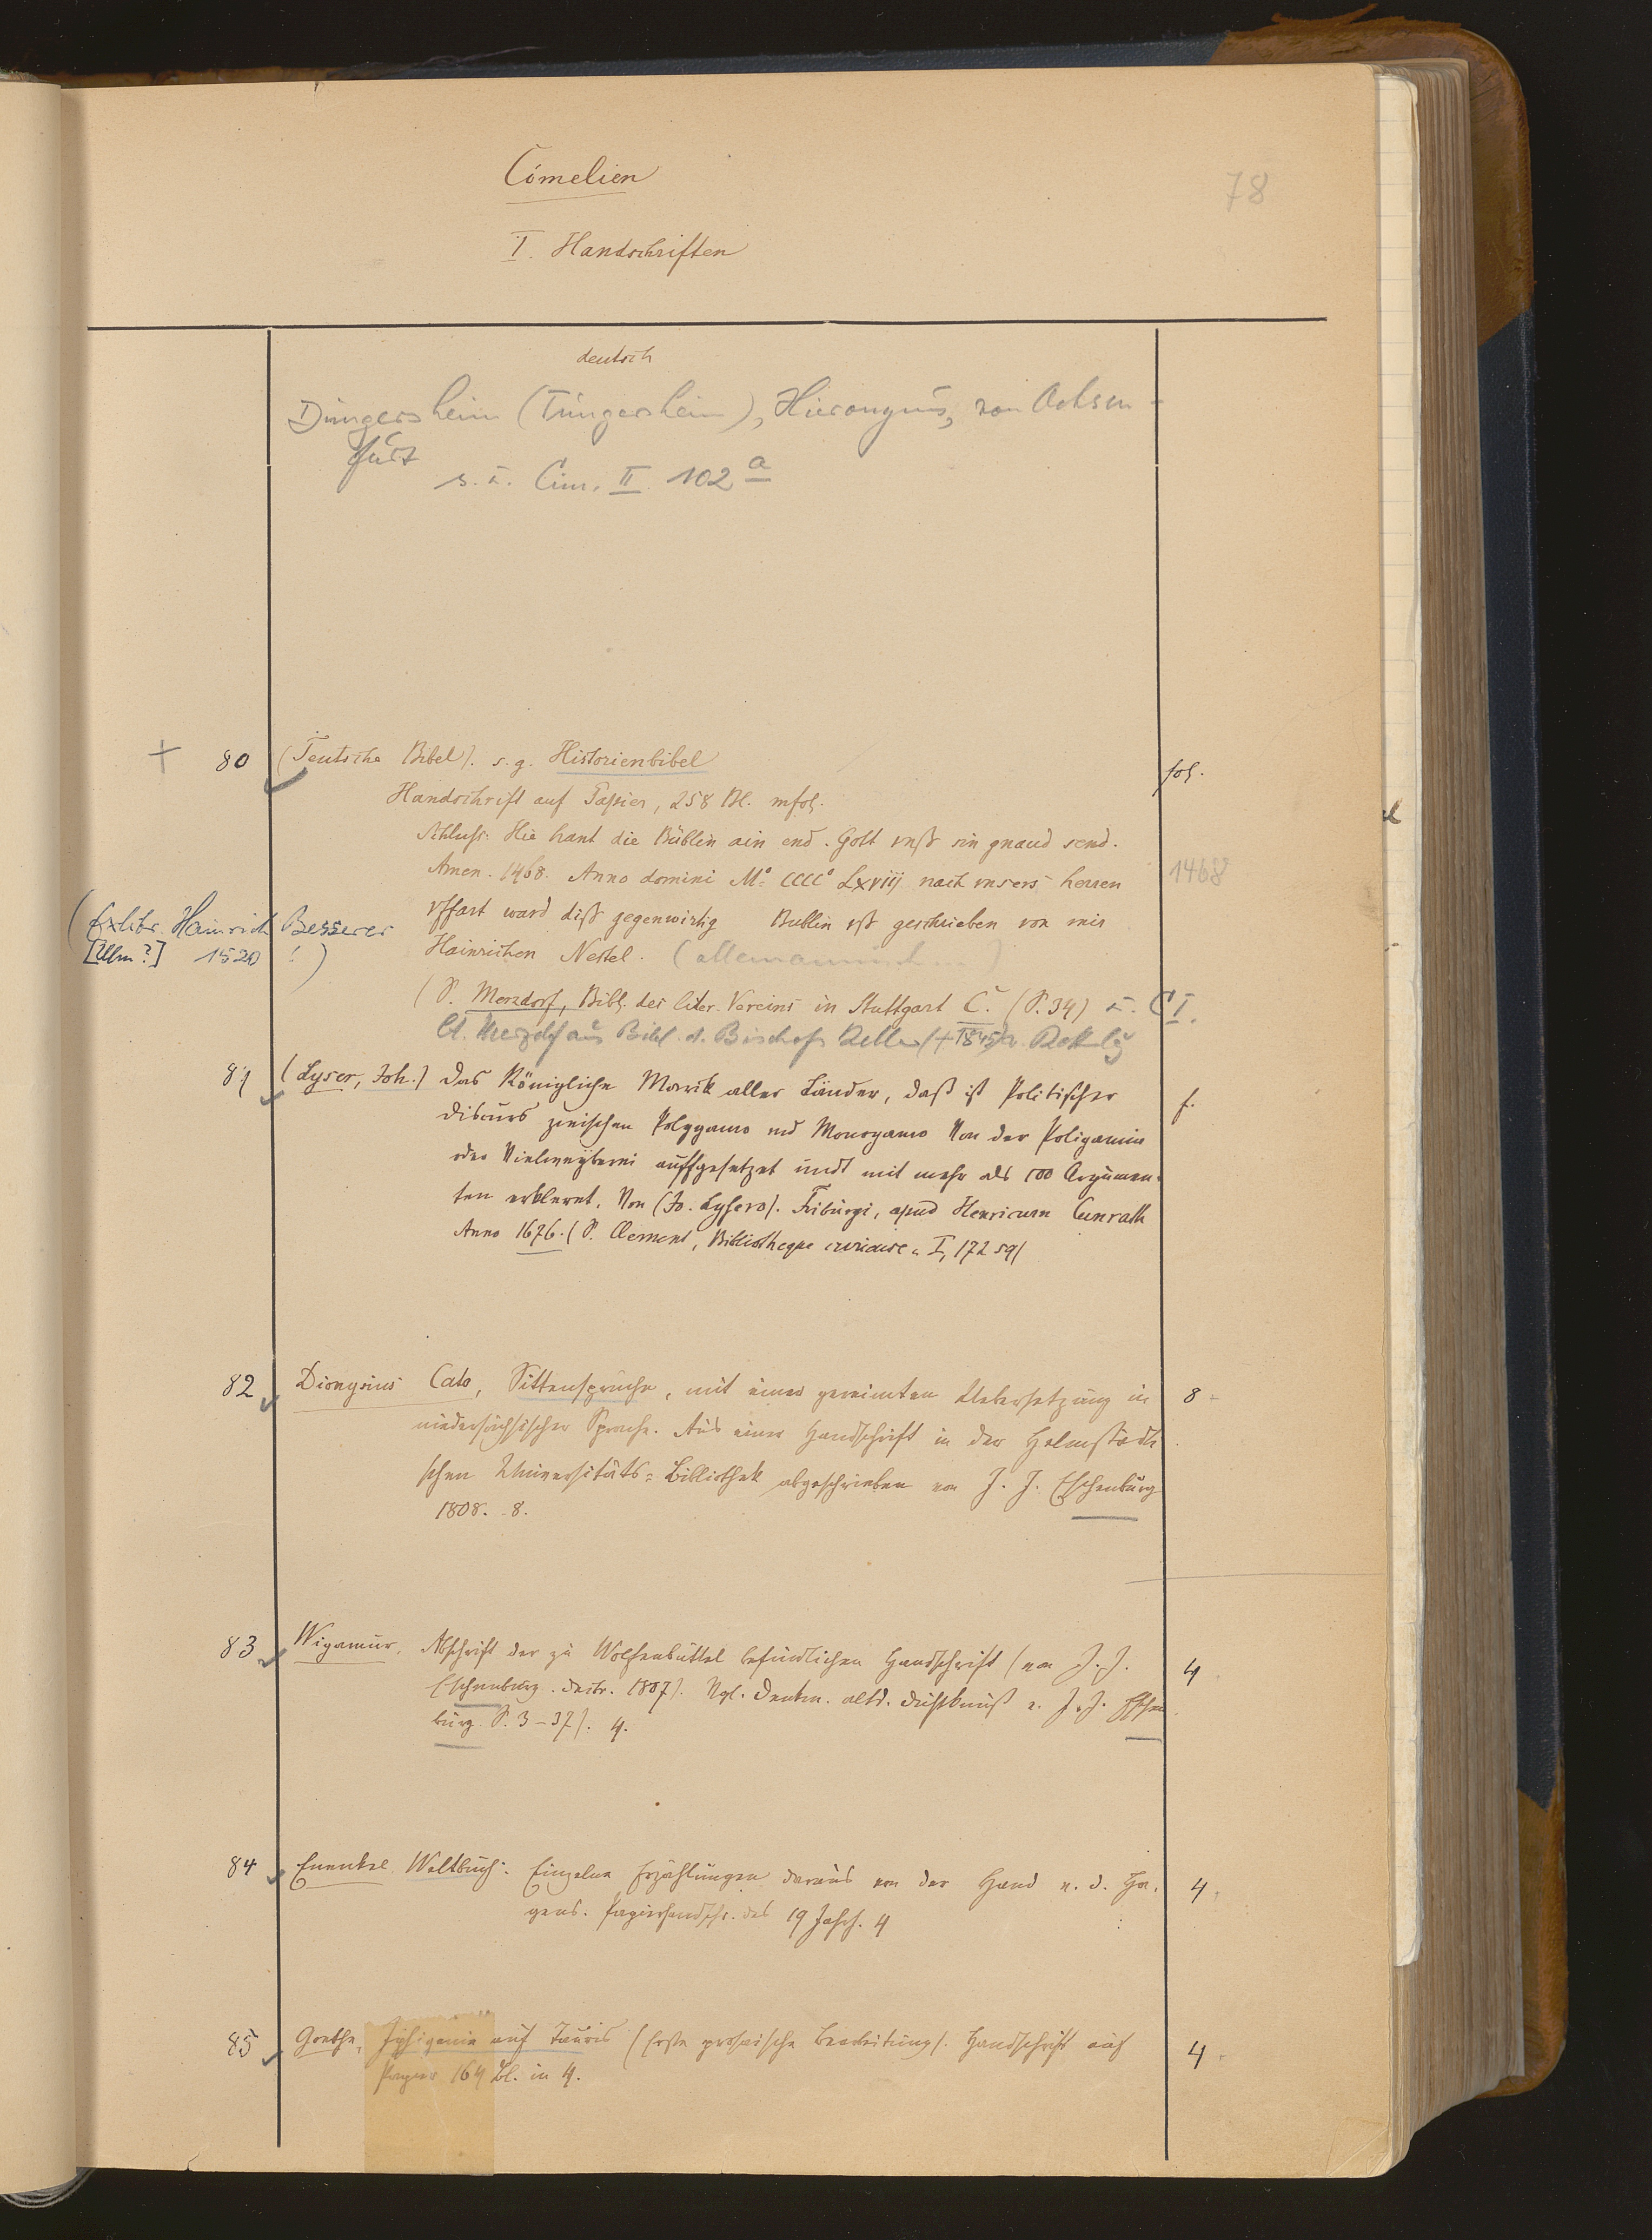 Cimelien
78
I. Handschriften
deutsch
Düngersheim (Tüngersheim), Hieronymus, von Ochsen-
furt
s. u. Cim. II. 102 a
+ 80 (Teutsche Bibel). s. g. Historienbibel fol.
Handschrift auf Papier, 258 Bl. mfol.
Schluss: Hie hant die Büblin ain end. Gott vnß sin gnaud send.
Amen. 1468. Anno domini Mº CCCCº Lxviij nach vnsers herren 1468
vffart ward diß gegenwirtig Bullin vß geschrieben von mir
(Exlibr. Hainrich Besserer
[Ulm?] 1520 !)
Hainrichen Nestel. (allemannisch)
(S. Merzdorf, Bibl. des liter. Vereins in Stuttgart C. (S. 34) u. CI.
Merzdorf aus Bibl. d. Bischofs Keller (†1845)
81 (Lyser, Joh.) Das Königliche Marck aller Länder, daß ist Politischer f.
Discurs zwischen Polygamo und Monogamo Von der Poligamia
oder Vielweyberei auffgesetzet undt mit mehr als 100 Argumen-
ten erklernt. Von (Jo. Lysero). Friburgi, apud Henricum Cunrath
Anno 1676. (S. Clement, Bibliotheque curieuse I, 172 sq)
82 Dionysius Cato, Sittensprüche, mit einer gereimten Uebersetzung in 8
niedersächsischer Sprache. Aus einer Handschrift in der Helmstädti
schen Universitäts=Bibliothek abgeschrieben von J. J. Eschenburg
1808. 8.
83 Wigamur. Abschrift der zu Wolfenbüttel befindlichen Handschrift (von J. J. 4
Eschenburg. 1807). Vgl. Denkm. altd. Dichtkunst v. J. J. Eschen
burg S. 3-37). 4.
84 Enenkel Weltbuch. Einzelne Erzählungen daraus von der Hand v. d. Ha- 4
gens. Papierhandschr. des 19 Jahrh. 4
85 Goethe, Iphigenie auf Tauris (Erste prosaische Bearbeitung). Handschrift auf 4
Papier 164 Bl. in 4.